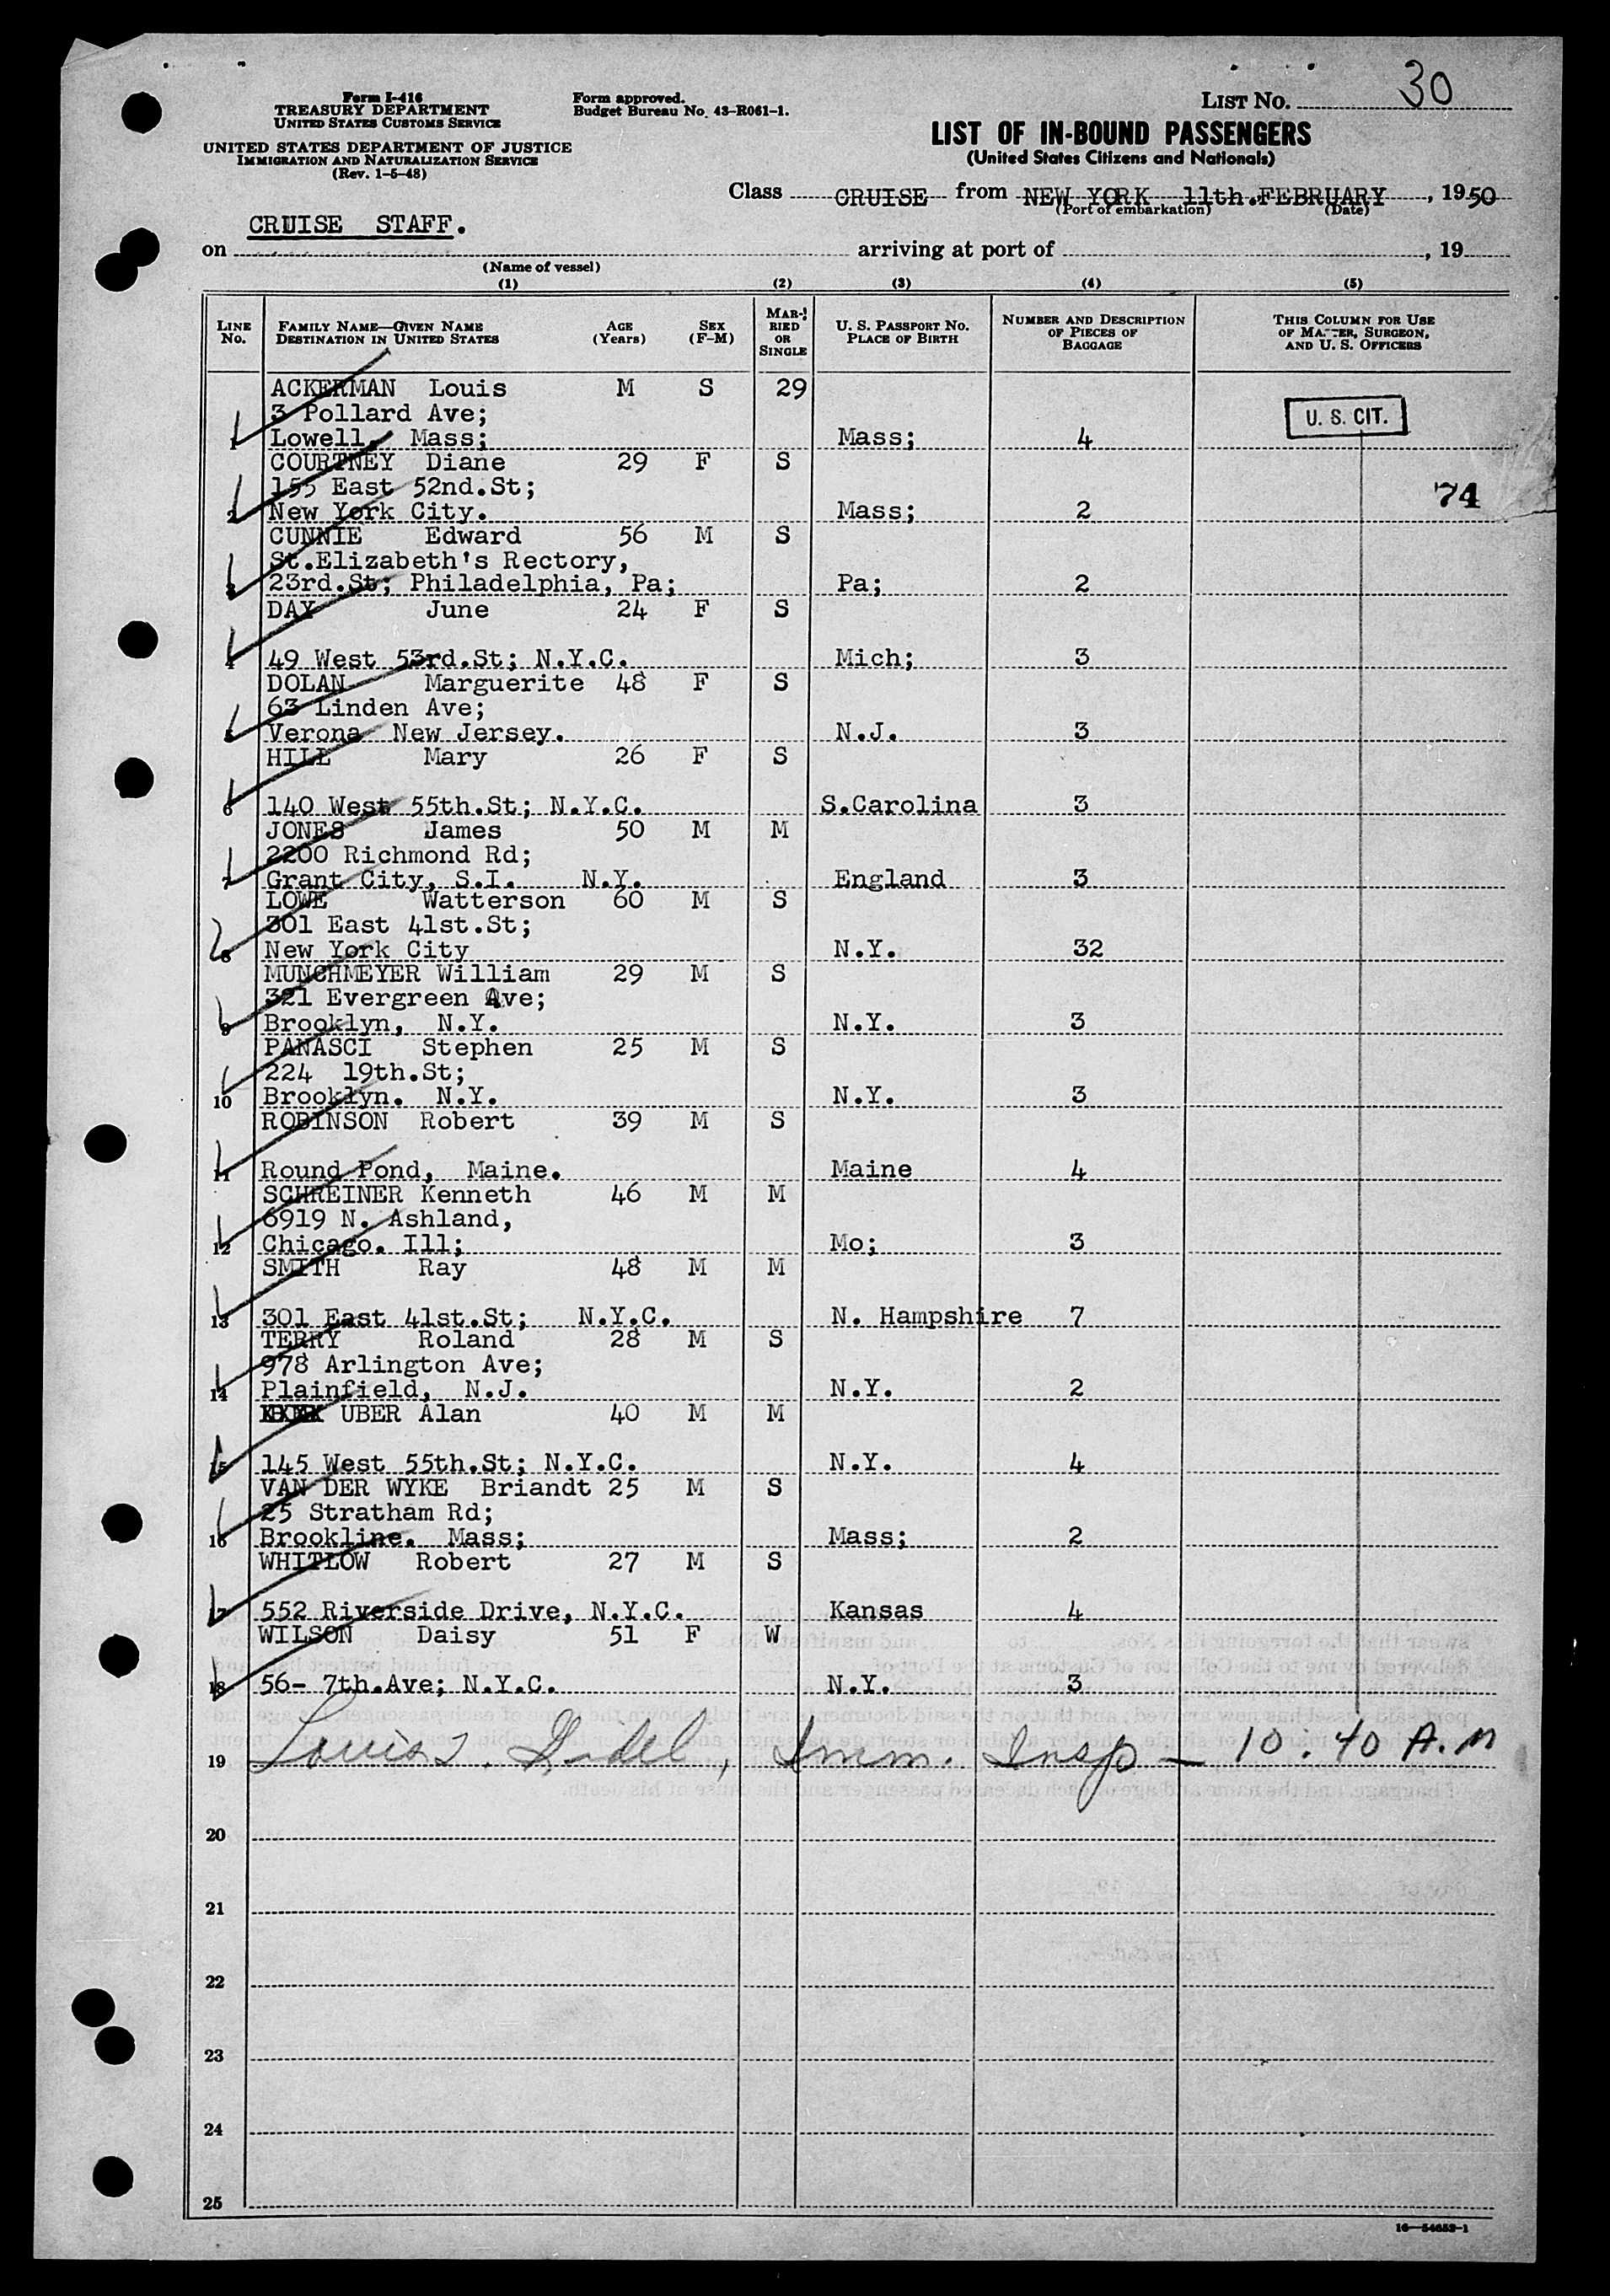 Form I-416
TREASURY DEPARTMENT
UNITED STATES CUSTOMS SERVICE
UNITED STATES DEPARTMENT OF JUSTICE
IMMIGRATION AND NATURALIZATION SERVICE
(Rev. 1-5-48)
Form approved.
Budget Bureau No. 43-R061-1.
LIST NO. 30
LIST OF IN-BOUND PASSENGERS
(United States Citizens and Nationals)
Class CRUISE from NEW YORK 11th.FEBRUARY, 1950
(Port of embarkation) (Date)
CRUISE STAFF.
on arriving at port of , 19
(Name of vessel)
(1) (2) (3) (4) (5)
LINE NO. FAMILY NAME—GIVEN NAME DESTINATION IN UNITED STATES AGE (Years) SEX (F-M) MARRIED OR SINGLE U. S. PASSPORT NO. PLACE OF BIRTH NUMBER AND DESCRIPTION OF PIECES OF BAGGAGE THIS COLUMN FOR USE OF MASTER, SURGEON, AND U. S. OFFICERS
ACKERMAN Louis M S 29
3 Pollard Ave;
1 Lowell, Mass; Mass; 4
U. S. CIT.
COURTNEY Diane 29 F S
155 East 52nd.St;
74
2 New York City. Mass; 2
CUNNIE Edward 56 M S
St.Elizabeth's Rectory,
3 23rd.St; Philadelphia, Pa; Pa; 2
DAY June 24 F S
4 49 West 53rd.St; N.Y.C. Mich; 3
DOLAN Marguerite 48 F S
63 Linden Ave;
5 Verona New Jersey. N.J. 3
HILL Mary 26 F S
6 140 West 55th.St; N.Y.C. S.Carolina 3
JONES James 50 M M
2200 Richmond Rd;
7 Grant City, S.I. N.Y. England 3
LOWE Watterson 60 M S
301 East 41st.St;
8 New York City N.Y. 32
MUNCHMEYER William 29 M S
321 Evergreen Ave;
9 Brooklyn, N.Y. N.Y. 3
PANASCI Stephen 25 M S
224 19th.St;
10 Brooklyn. N.Y. N.Y. 3
ROBINSON Robert 39 M S
11 Round Pond, Maine. Maine 4
SCHREINER Kenneth 46 M M
6919 N. Ashland,
12 Chicago. Ill; Mo; 3
SMITH Ray 48 M M
13 301 East 41st.St; N.Y.C. N. Hampshire 7
TERRY Roland 28 M S
978 Arlington Ave;
14 Plainfield, N.J. N.Y. 2
UBER Alan 40 M M
15 145 West 55th.St; N.Y.C. N.Y. 4
VAN DER WYKE Briandt 25 M S
25 Stratham Rd;
16 Brookline. Mass; Mass; 2
WHITLOW Robert 27 M S
17 552 Riverside Drive, N.Y.C. Kansas 4
WILSON Daisy 51 F W
18 56- 7th.Ave; N.Y.C. N.Y. 3
19 Louis Imm. Insp — 10:40 A.M
20
21
22
23
24
25